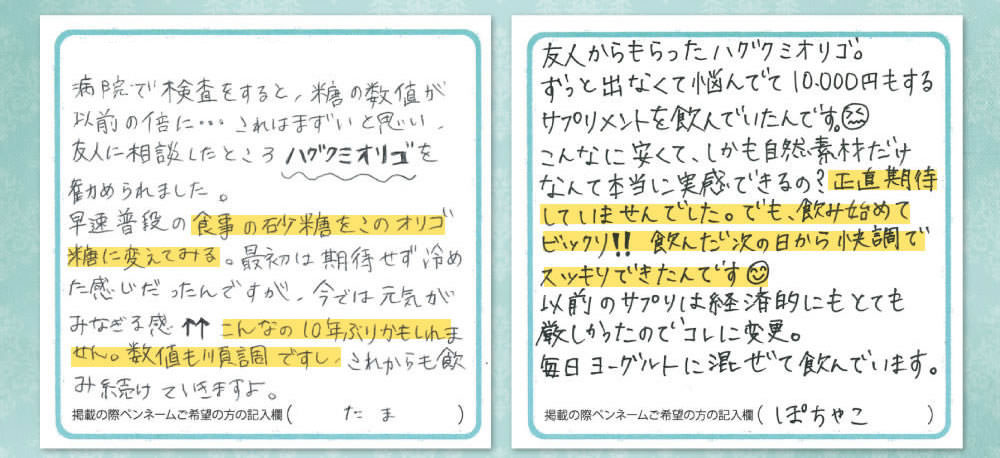 病院で検査をすると、糖の数値が
以前の倍に…これはまずいと思い、
友人に相談したところハグクミオリゴを
勧められました。
早速普段の食事の砂糖をこのオリゴ
糖に変えてみる。最初は期待せず冷め
た感じだったんですが、今では元気が
みなぎる感↑↑こんなの10年ぶりかもしれま
せん。数値も順調ですし、これからも飲
み続けていきますよ。
掲載の際ペンネームご希望の方の記入欄(たま)
友人からもらったハグクミオリゴ。
ずっと出なくて悩んでて10.000円もする
サプリメントを飲んでいたんです。
こんなに安くて、しかも自然素材だけ
なんて本当に実感できるの?正直期待
していませんでした。でも、飲み始めて
ビックリ!!飲んだ次の日から快調で
スッキリできたんです
以前のサプリは経済的にもとても
厳しかったのでコレに変更。
毎日ヨーグルトに混ぜて飲んでいます。
掲載の際ペンネームご希望の方の記入欄(ぽちゃこ)